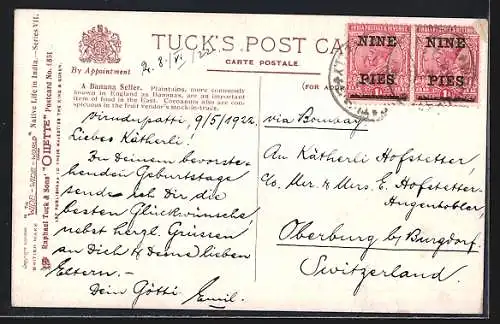 TUCK'S POST CA
CARTE POSTALE
By Appointment
(FOR ADD
A Banana Seller. Plantains, more commonly
known in England as Bananas, are an important
item of food in the East. Cocoanuts also are con-
spicuous in the fruit vendor's stock-in-trade.
Raphael Tuck & Sons' "OILETTE" Postcard No. 1831
Native Life in India.—Series VII.
INDIA POSTAGE & REVENUE
NINE
PIES
INDIA POSTAGE & REVENUE
NINE
PIES
Virudupatti, 9/5/1922.
Liebes Kätherli!
Zu Deinem bevorste-
henden Geburtstage
sende ich Dir die
besten Glückwünsche
nebst herzl. Grüssen
an Dich & Deine lieben
Eltern.—
Dein Götti
Emil.
via Bombay
An Kätherli Hofstetter,
C/o. Mr. & Mrs. E. Hofstetter-
Augentobler,
Oberburg b/ Burgdorf.
Switzerland.